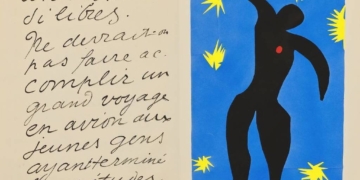 si libres.
Ne devrait-on
pas faire ac-
complir un
grand voyage
en avion aux
jeunes gens
ayant terminé